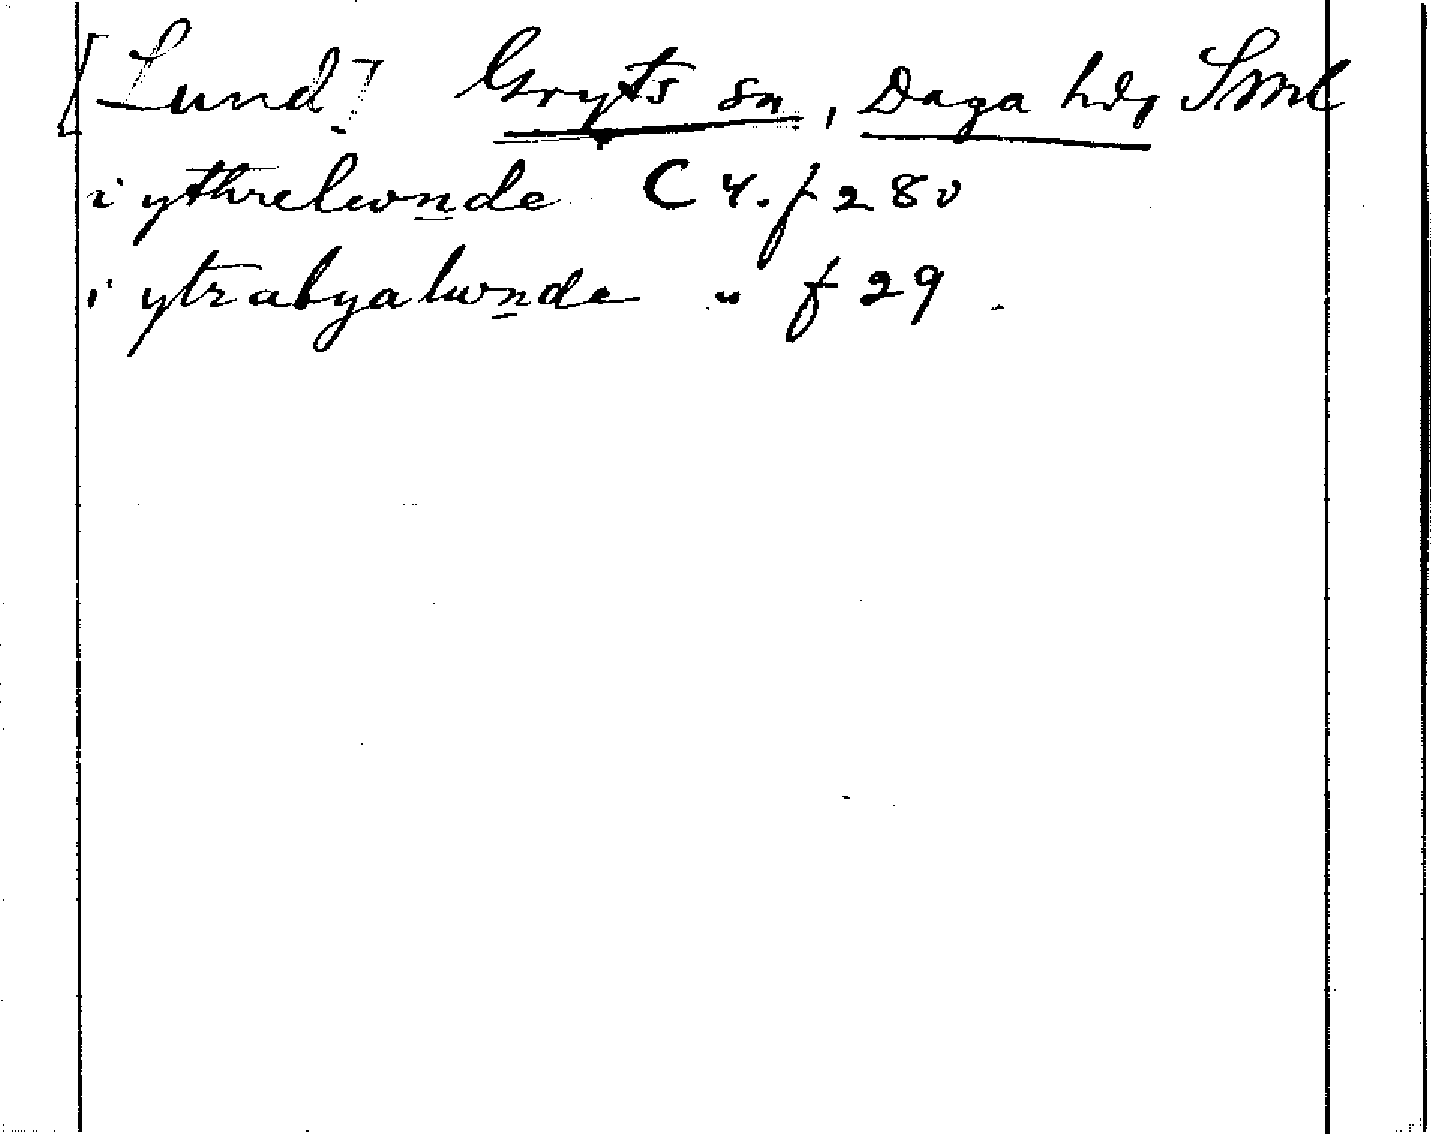 [Lund] Gryts sn, Daga hd, Sml
i ythrelwnde C 4. f 28v
i ytrabyalwnde " f 29.